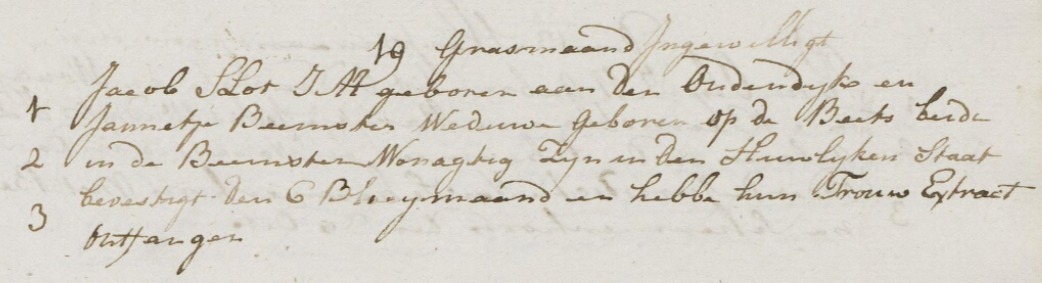 19 Grasmaand Ingewilligt
Jacob Slot J M geboren aan den Oudendyke en
1 Jannetje Beemster Weduwe geboren op de Beets beide
2 in de Beemster Wonagtig Zyn in den Huwlyken Staat
bevestigt den 6 Bloeymaand en hebbe hun Trouw Extract
3 Ontfangen